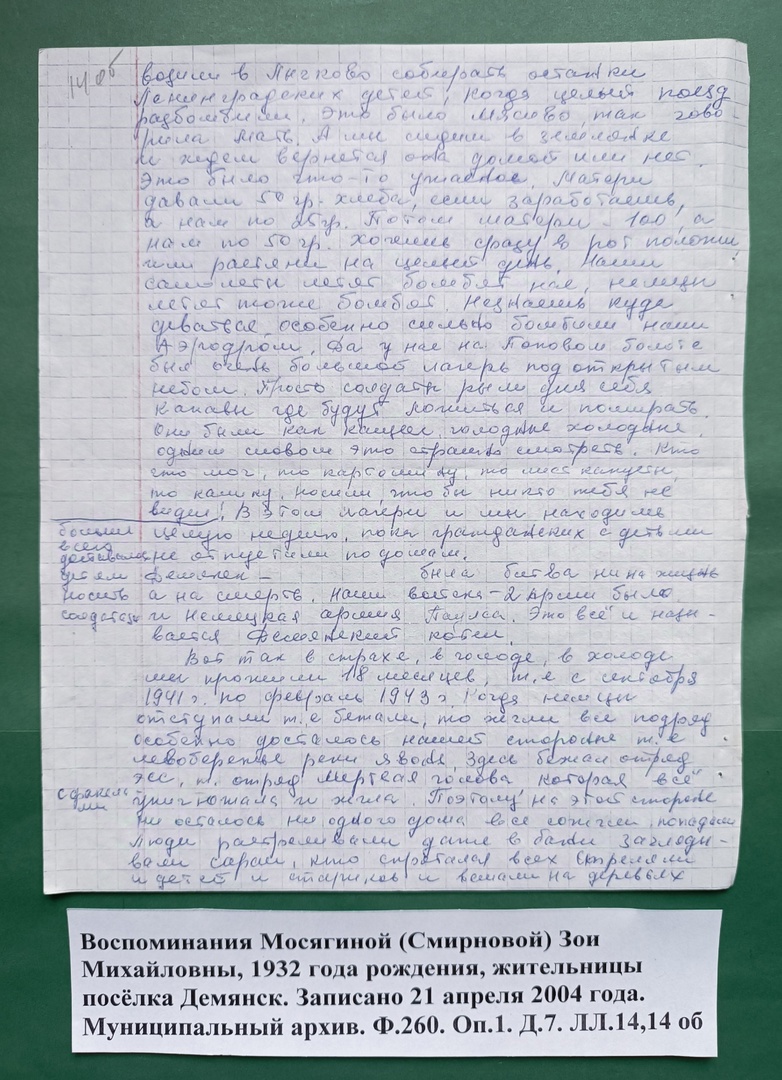 14 об
водили в Лычково собирать останки
Ленинградских детей, когда целый поезд
разбомбили. Это было мясиво, так гово-
рила мать. А мы сидели в землянке
и ждем вернется она домой или нет.
Это было что-то ужасное. Матери
давали 50 гр. хлеба, если заработаешь,
а нам по 25 гр. Потом матери - 100, а
нам по 50 гр. хочешь сразу в рот положи
или растяни на целый день. Наши
самолеты летят бомбят нас, немцы
летят тоже бомбят. Незнаешь куда
деваться, особенно сильно бомбили наши
Аэродром. Да у нас на Поповом болоте
был очень большой лагерь под открытым
небом. Просто солдаты рыли для себя
канавы где будут ложиться и помирать.
Они были как кащеи, голодные холодные
одним словом это страшно смотреть. Кто
что мог, то картошку, то лист капусты,
то калику, носили, чтобы никто тебя не
видел! В этом лагере и мы находились
целую неделю, пока гражданских с детьми
не отпустили по домам.
больше
всего
доставалось
детям
носить
солдатам
Демянск - была битва не на жизнь
а на смерть. Наши войска - 2 Армии было
и Немецкая армия Паулса. Это всё и назы-
вается Демянский котел.
Вот так в страхе, в голоде, в холоде
мы прожили 18 месяцев, т.е с сентября
1941 г. по февраль 1943 г. Когда немцы
отступали т.е бежали, то жгли все подряд
особенно досталось нашей стороне т.е
левобережье реки Явонь. Здесь бежал отряд
эсс, отряд мертвая голова которая всё
с факела
ми
уничтожала и жгла. Поэтому на этой стороне
не осталось ни одного дома все сожгли, попадали
люди расстреливали даже в бани загляды-
вали сараи, кто спрятался всех стреляли
и детей и стариков и вешали на деревьях
Воспоминания Мосягиной (Смирновой) Зои
Михайловны, 1932 года рождения, жительницы
посёлка Демянск. Записано 21 апреля 2004 года.
Муниципальный архив. Ф.260. Оп.1. Д.7. ЛЛ.14,14 об